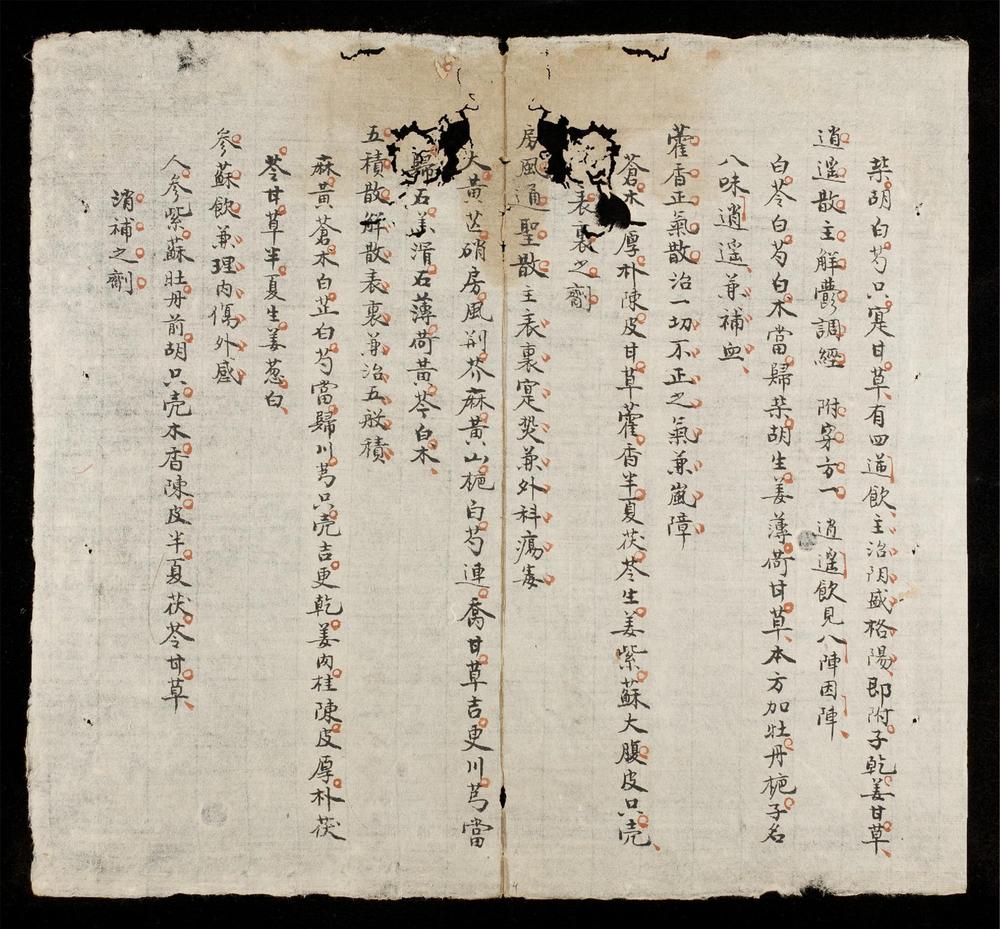 柴胡白芍只寔甘草有四逆飲主治阴盛格陽即附子乾姜甘草
逍遥散主解欝調經 附穿方一 逍遥飲見八陣因陣
白苓白芍白术當歸柴胡生姜薄荷甘草本方加牡丹梔子名
八味逍遥兼補血
藿香正氣散治一切不正之氣兼嵐障
蒼术厚朴陳皮甘草藿香半夏茯苓生姜紫蘇大腹皮只壳
表裏之劑
房風通聖散主表裏寔熒兼外科瘍毒
大黃芒硝房風荊芥麻黃山梔白芍連喬甘草吉更川芎當
歸石羔滑石薄荷黃芩白术
五積散解散表裏兼治五般積
麻黃蒼术白芷白芍當歸川芎只壳吉更乾姜肉桂陳皮厚朴茯
苓甘草半夏生姜葱白
參蘇飲兼理内傷外感
人參紫蘇牡丹前胡只壳木香陳皮半夏茯苓甘草
消補之劑